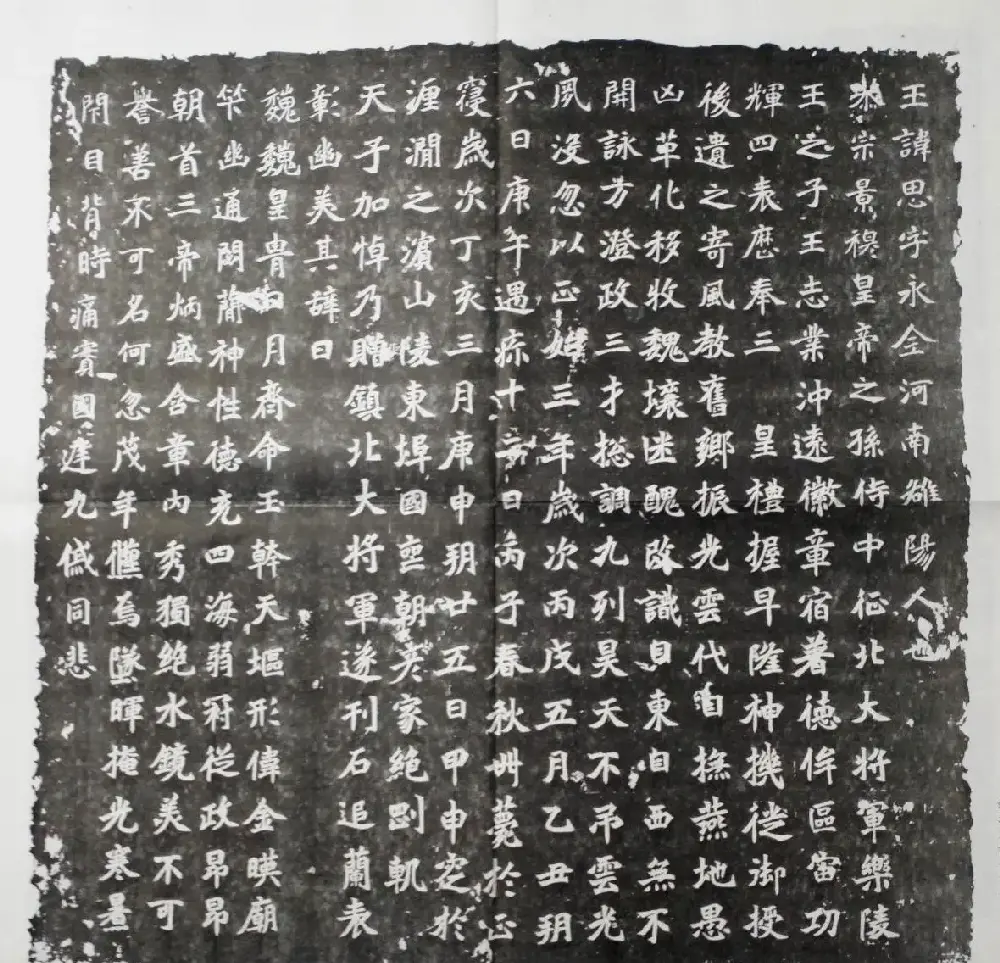 王諱思字永全河南雒陽人也
恭宗景穆皇帝之孫侍中征北大将軍樂陵
王之子王志業沖遠徽章宿著德侔區宙功
輝四表歷奉三皇禮握早隆神機徙御授
後遺之寄風教舊鄉振光雲代自撫燕地愚
凶草化移牧魏壤迷醜改識自東自西無不
開詠方澄政三才揔調九列昊天不吊雲光
夙没忽以正始三年歲次丙戌五月乙丑朔
六日庚午遇疹十二日丙子春秋卌薨於正
寢歲次丁亥三月庚申朔廿五日甲申窆於
湹澗之濱山陵東埠國喪朝彥家絕剬軌
天子加悼乃贈鎮北大将軍遂刊石追蘭表
彰幽美其辭曰
魏魏皇胄日月齊命玉幹天堀形偉金暎廟
竿幽通閟神性德充四海弱冠從政昂昂
朝首三帝炳盛含章内秀獨絕水鏡美不可
譽善不可名何忽茂年儵焉墜暉掩光寒暑
閇目背時痛賓國庭九慼同悲